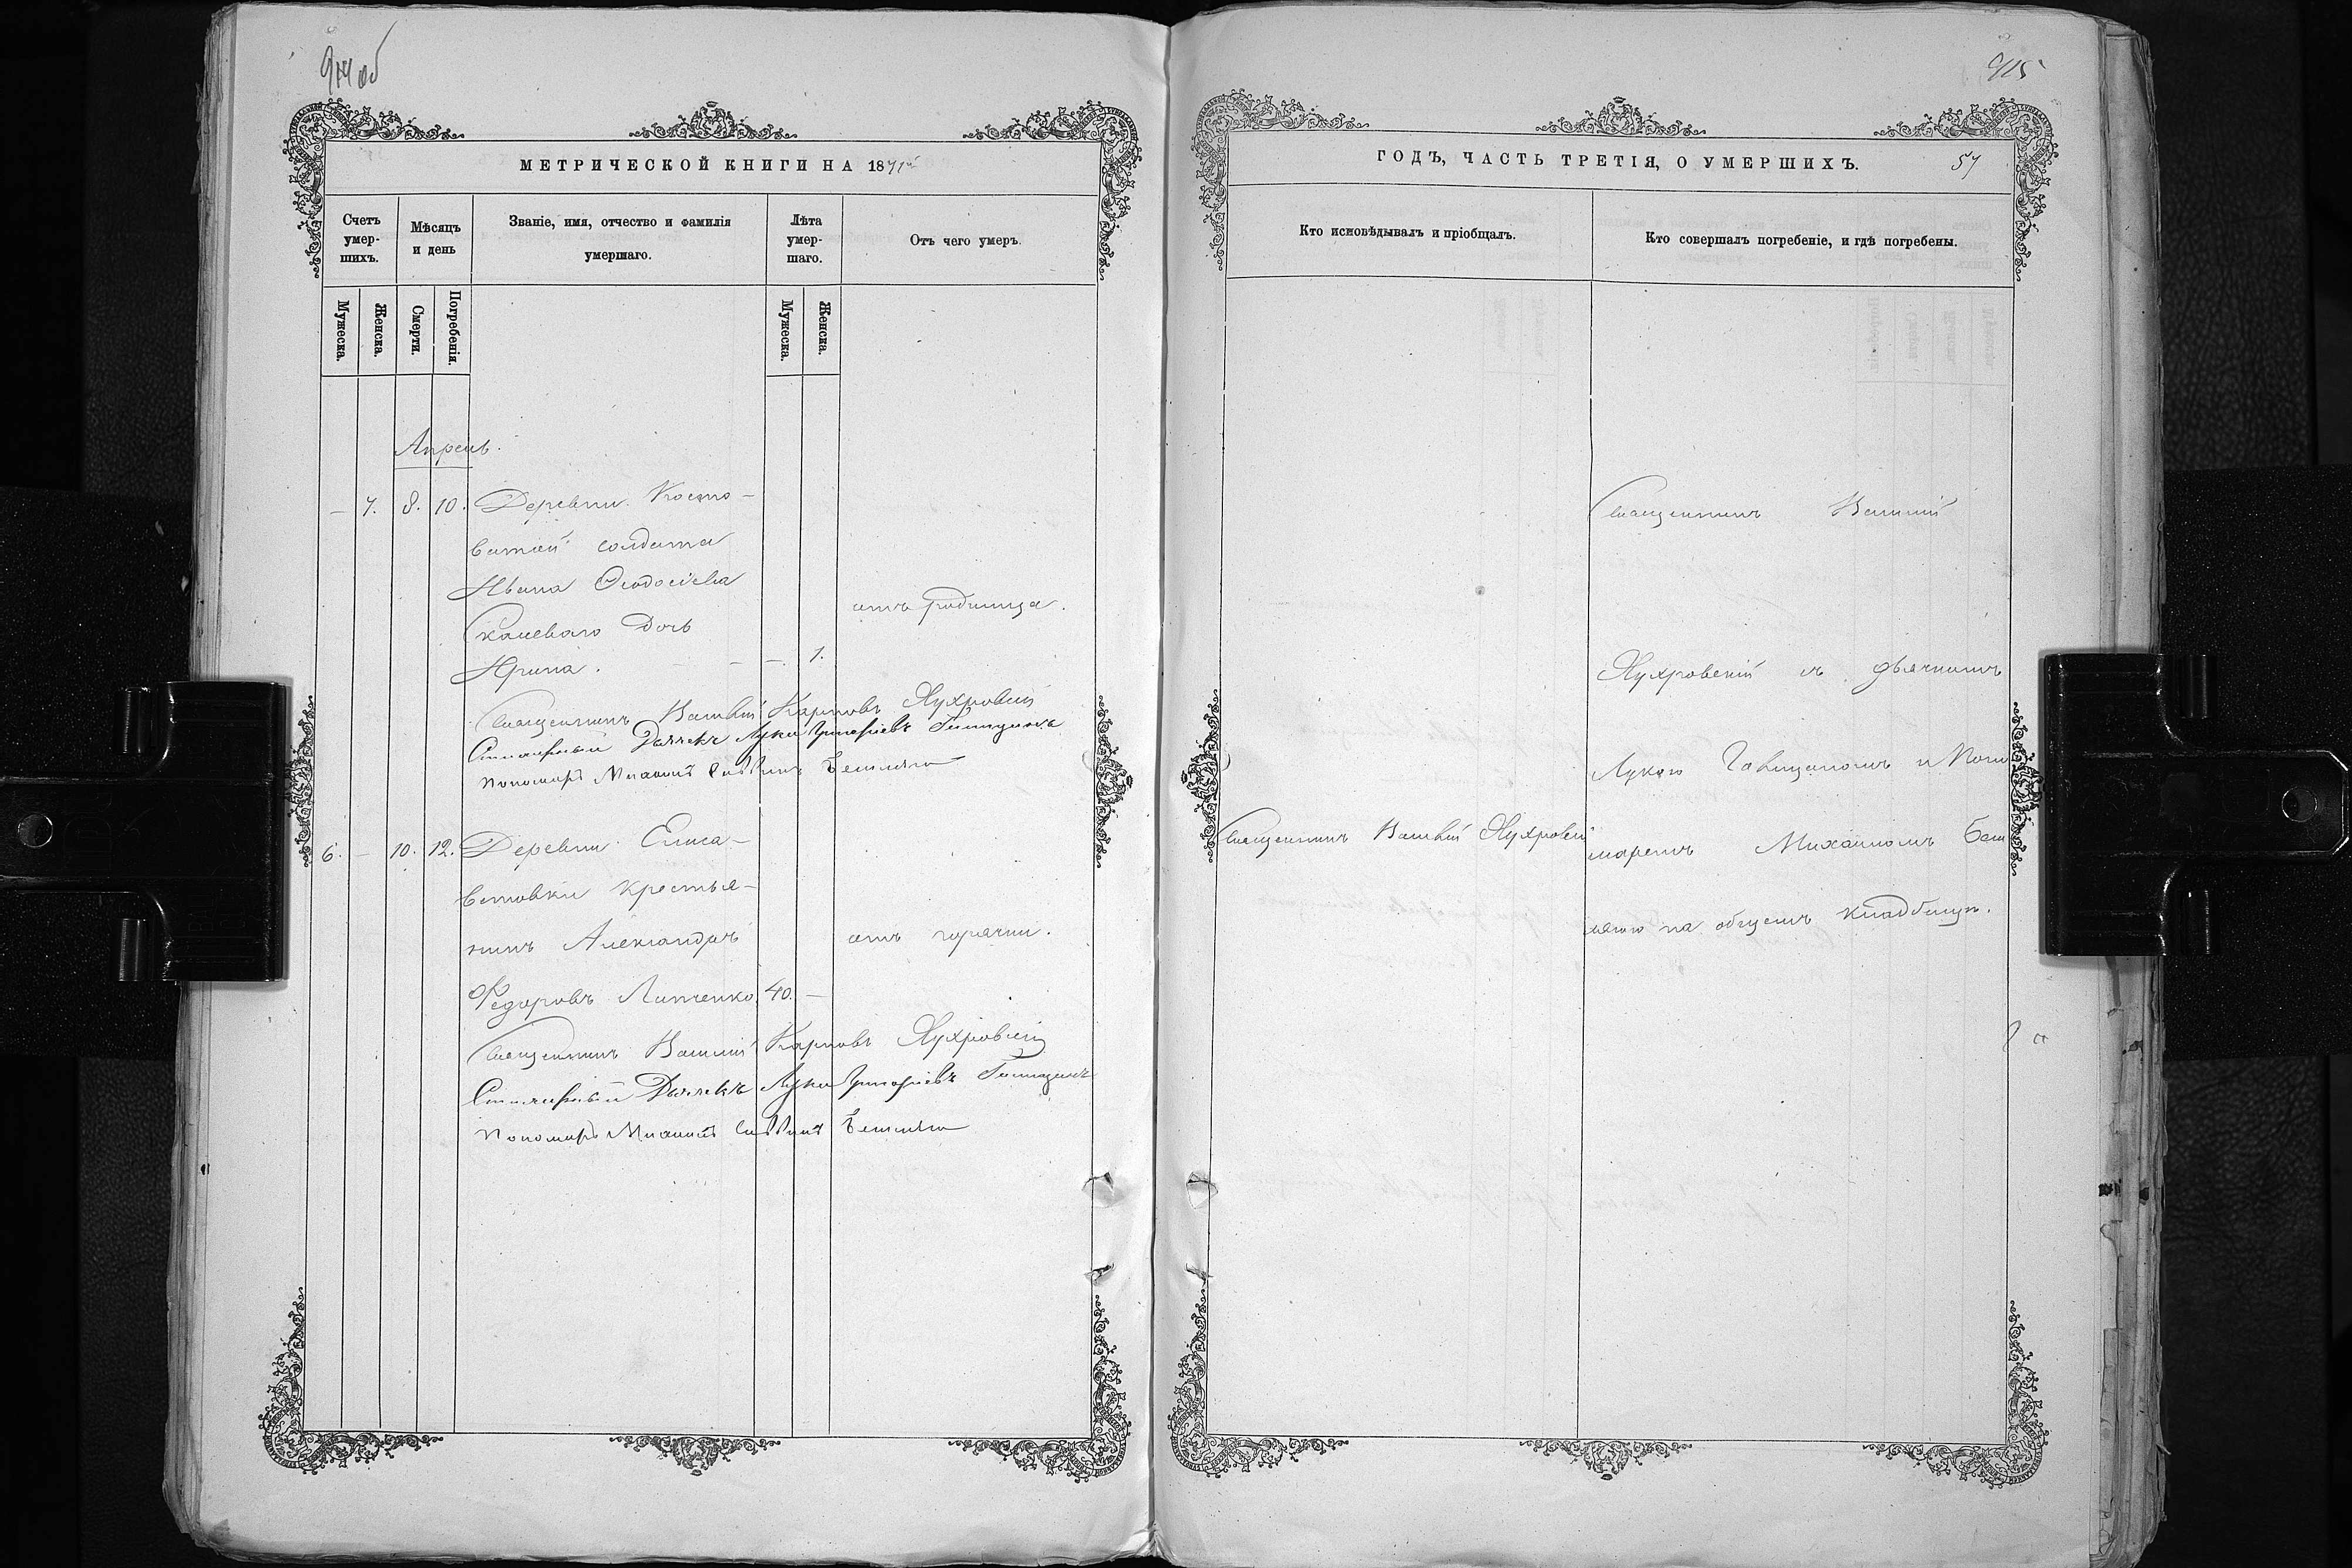 914 об
МЕТРИЧЕСКОЙ КНИГИ НА 1871й
Счетъ умер-шихъ.
Мѣсяцъ и день
Званіе, имя, отчество и фамилія умершаго.
Лѣта умер-шаго.
Отъ чего умеръ.
Мужеска.
Женска.
Смерти.
Погребенія.
Мужеска.
Женска.
Апрель.
— 7. 8. 10. Деревни Костно-
ватой солдата
Ивана Ѳеодосіева
дочь
Ирина. — — 1.
отъ родимца.
Священникъ Василій Карповъ Яухровскій
Стихарный Дьячекъ Лука Григоріевъ
Пономарь Михаилъ
6. — 10. 12. Деревни Елиса-
ветовки крестья-
нинъ Александръ
Федоровъ Липченко. 40. —
отъ горячки.
Священникъ Василій Карповъ Яухровскій
Стихарный Дьячекъ Лука Григоріевъ
Пономарь Михаилъ
915
ГОДЪ, ЧАСТЬ ТРЕТІЯ, О УМЕРШИХЪ.
57
Кто исповѣдывалъ и пріобщалъ.
Кто совершалъ погребеніе, и гдѣ погребены.
Священникъ Василій Яухровскій
Священникъ Василій
Яухровскій съ дьячкомъ
Лукою и Поно
маремъ Михаиломъ
на общемъ кладбищѣ.